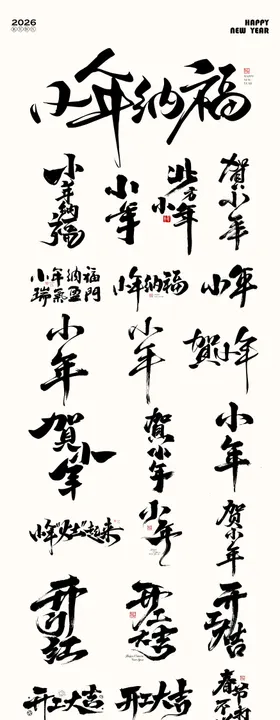 2026
HAPPY
NEW YEAR
小年纳福
小年纳福
小年
北方小年
贺小年
小年纳福
瑞气盈门
小年纳福
小年
小年
小年
贺小年
贺小年
贺小年
小年
小年"灶"起来
小年
贺小年
开门红
开工大吉
开工大吉
开工大吉
开工大吉